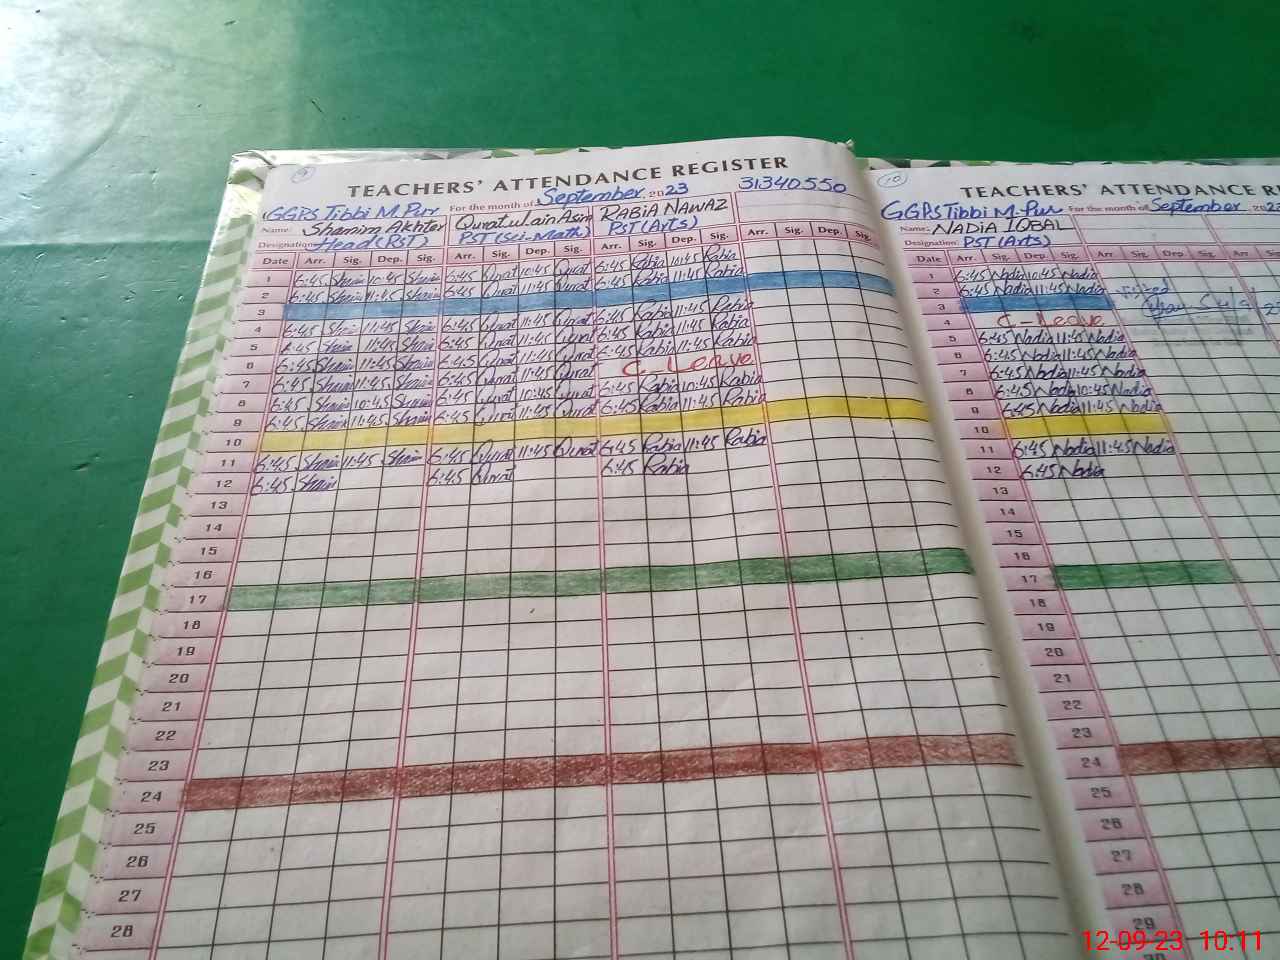 9
TEACHERS' ATTENDANCE REGISTER
For the month of September 2023 31340550
GGPS Tibbi M.Pur
Name: Shamim Akhter Quratulain Asim RABIA NAWAZ
Designation: Head (PST) PST (Sci-Math) PST (Arts)
Date Arr. Sig. Dep. Sig. Arr. Sig. Dep. Sig. Arr. Sig. Dep. Sig. Arr. Sig. Dep. Sig.
1 6:45 Sham 10:45 Sham 6:45 Qurat 10:45 Qurat 6:45 Rabia 10:45 Rabia
2 6:45 Sham 11:45 Sham 6:45 Qurat 11:45 Qurat 6:45 Rabia 11:45 Rabia
3
4 6:45 Sham 11:45 Sham 6:45 Qurat 11:45 Qurat 6:45 Rabia 11:45 Rabia
5 6:45 Sham 11:45 Sham 6:45 Qurat 11:45 Qurat 6:45 Rabia 11:45 Rabia
6 6:45 Sham 11:45 Sham 6:45 Qurat 11:45 Qurat 6:45 Rabia 11:45 Rabia
7 6:45 Sham 11:45 Sham 6:45 Qurat 11:45 Qurat C-Leave
8 6:45 Sham 10:45 Sham 6:45 Qurat 10:45 Qurat 6:45 Rabia 10:45 Rabia
9 6:45 Sham 11:45 Sham 6:45 Qurat 11:45 Qurat 6:45 Rabia 11:45 Rabia
10
11 6:45 Sham 11:45 Sham 6:45 Qurat 11:45 Qurat 6:45 Rabia 11:45 Rabia
12 6:45 Sham 6:45 Qurat 6:45 Rabia
13
14
15
16
17
18
19
20
21
22
23
24
25
26
27
28
10
TEACHERS' ATTENDANCE
GGPS Tibbi M.Pur For the month of September 2023
Name: NADIA IQBAL
Designation: PST (Arts)
Date Arr. Sig. Dep. Sig. Arr. Sig. Dep. Sig. Arr.
1 6:45 Nadia 10:45 Nadia
2 6:45 Nadia 11:45 Nadia
3
4 C-Leave
5 6:45 Nadia 11:45 Nadia
6 6:45 Nadia 11:45 Nadia
7 6:45 Nadia 11:45 Nadia
8 6:45 Nadia 10:45 Nadia
9 6:45 Nadia 11:45 Nadia
10
11 6:45 Nadia 11:45 Nadia
12 6:45 Nadia
13
14
15
16
17
18
19
20
21
22
23
24
25
26
27
28
29
30
12-09-23 10:11